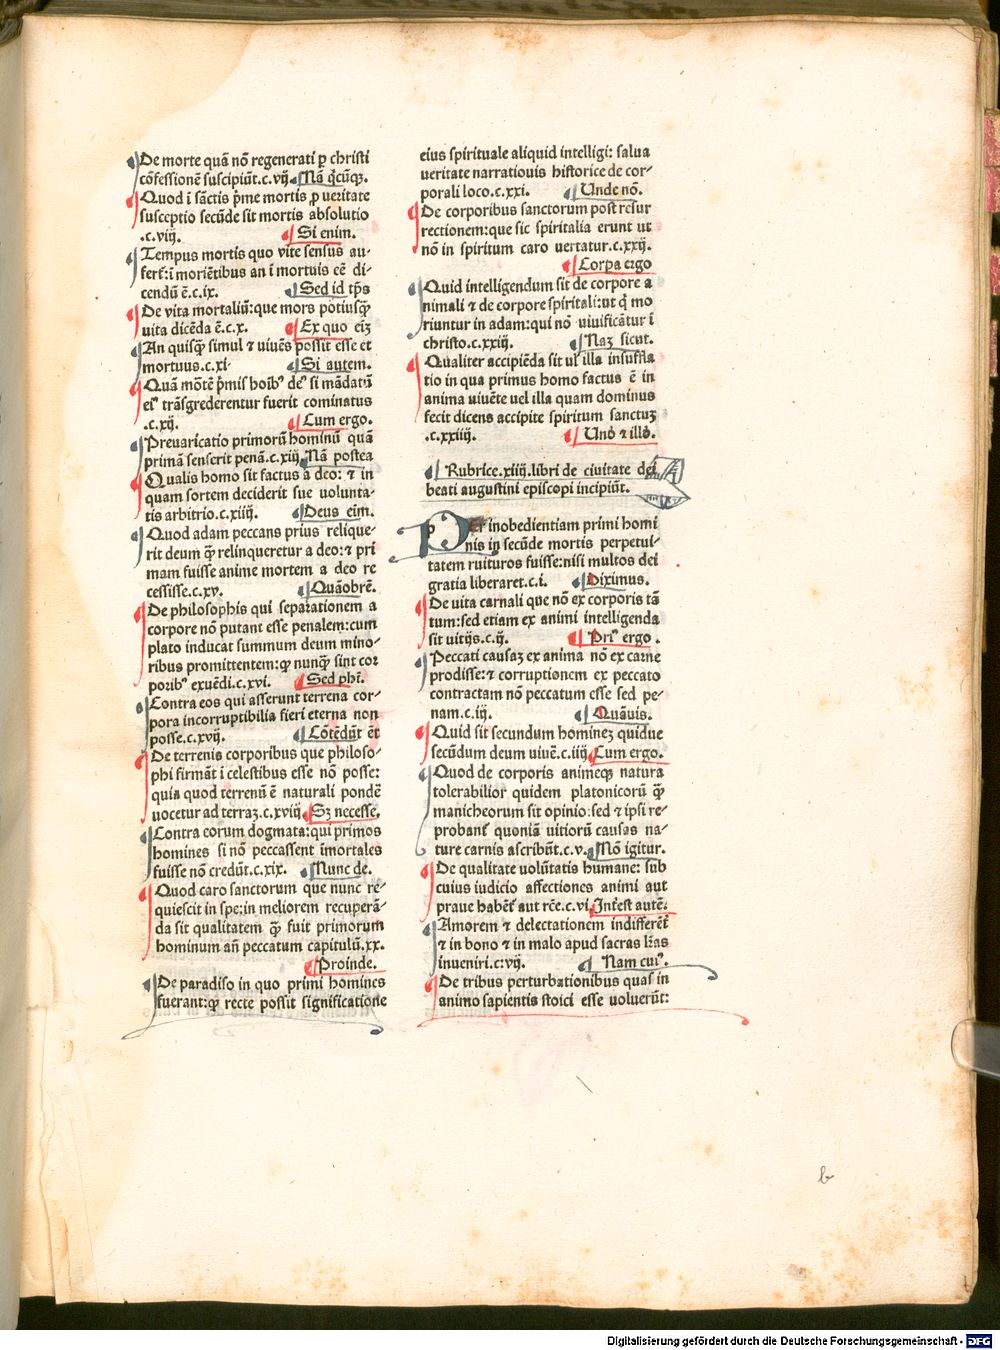 De morte quā nō regenerati p christi
cōfessionē suscipiūt.c.vij. Nā q̄cūqꝫ.
Quod ī sāctis p̄me mortis ꝓ ueritate
susceptio secūde sit mortis absolutio
.c.viij. Si enim.
Tempus mortis quo vite sensus au-
fert̄:ī moriētibus an ī mortuis eē di-
cendū ē.c.ix. Sed id tp̄s
De vita mortaliū:que mors potiusqꝫ
uita dicēda ē.c.x. Ex quo eiꝫ
An quisqꝫ simul ⁊ uiuēs possit esse et
mortuus.c.xi. Si autem.
Quā mōtē p̄mis hoībꝰ deꝰ si mādatū
eiꝰ trāsgrederentur fuerit cominatus
.c.xij. Cum ergo.
Prevaricatio primorū hominū quā
primā senserit penā.c.xiij. Nā postea
Qualis homo sit factus a deo: ⁊ in
quam sortem deciderit sue uolunta-
tis arbitrio.c.xiiij. Deus eīm.
Quod adam peccans prius relique-
rit deum qꝫ relinqueretur a deo:⁊ pri
mam fuisse anime mortem a deo re
cessisse.c.xv. Quāobrē.
De philosophis qui separationem a
corpore nō putant esse penalem:cum
plato inducat summum deum mino-
ribus promittentem:qꝫ nunqꝫ sint cor
poribꝰ exuēdi.c.xvi. Sed phī.
Contra eos qui asserunt terrena cor-
pora incorruptibilia fieri eterna non
posse.c.xvij. Cōtēdūt et
De terrenis corporibus que philoso-
phi firmāt ī celestibus esse nō posse:
quia quod terrenū ē naturali pondē
uocetur ad terraꝫ.c.xviij. Sꝫ necesse.
Contra eorum dogmata:qui primos
homines si nō peccassent īmortales
fuisse nō credūt.c.xix. Nunc de.
Quod caro sanctorum que nunc re-
quiescit in spe:in meliorem recuperā-
da sit qualitatem qꝫ fuit primorum
hominum añ peccatum capitulū.xx.
Proinde.
De paradiso in quo primi homines
fuerant:qꝫ recte possit significatione
eius spirituale aliquid intelligi: salua
ueritate narratiouis historice de cor-
porali loco.c.xxi. Unde nō.
De corporibus sanctorum post resur
rectionem:que sic spiritalia erunt ut
nō in spiritum caro uertatur.c.xxij.
Corpa ergo
Quid intelligendum sit de corpore a
nimali ⁊ de corpore spiritali:ut q̄ mo
riuntur in adam:qui nō uiuificātur ī
christo.c.xxiij. Naꝫ sicut.
Qualiter accipiēda sit uľ illa insuffla
tio in qua primus homo factus ē in
anima uiuēte uel illa quam dominus
fecit dicens accipite spiritum sanctuꝫ
.c.xxiiij. Unō ⁊ illō.
Rubrice.xiiij.libri de ciuitate dei
beati augustini episcopi incipiūt.
PEr inobedientiam primi homi
nis in secūde mortis perpetui-
tatem ruituros fuisse:nisi multos dei
gratia liberaret.c.i. Diximus.
De uita carnali que nō ex corporis tā
tum:sed etiam ex animi intelligenda
sit uitijs.c.ij. Priꝰ ergo.
Peccati causaꝫ ex anima nō ex carne
prodisse:⁊ corruptionem ex peccato
contractam nō peccatum esse sed pe-
nam.c.iij. Quāuis.
Quid sit secundum homineꝫ quidue
secūdum deum uiuē.c.iiij. Cum ergo.
Quod de corporis animeqꝫ natura
tolerabilior quidem platonicorū qꝫ
manicheorum sit opinio:sed ⁊ ipsi re-
probant̄ quoniā uitiorū causas na-
ture carnis ascribūt.c.v. Nō igitur.
De qualitate uolūtatis humane: sub
cuius iudicio affectiones animi aut
praue habēt̄ aut rc̄e.c.vi. Int̄est autē.
Amorem ⁊ delectationem indifferēt̄
⁊ in bono ⁊ in malo apud sacras lr̄as
inueniri.c:vij. Nam cuiꝰ.
De tribus perturbationibus quas in
animo sapientis stoici esse voluerūt:
b
Digitalisierung gefördert durch die Deutsche Forschungsgemeinschaft - DFG